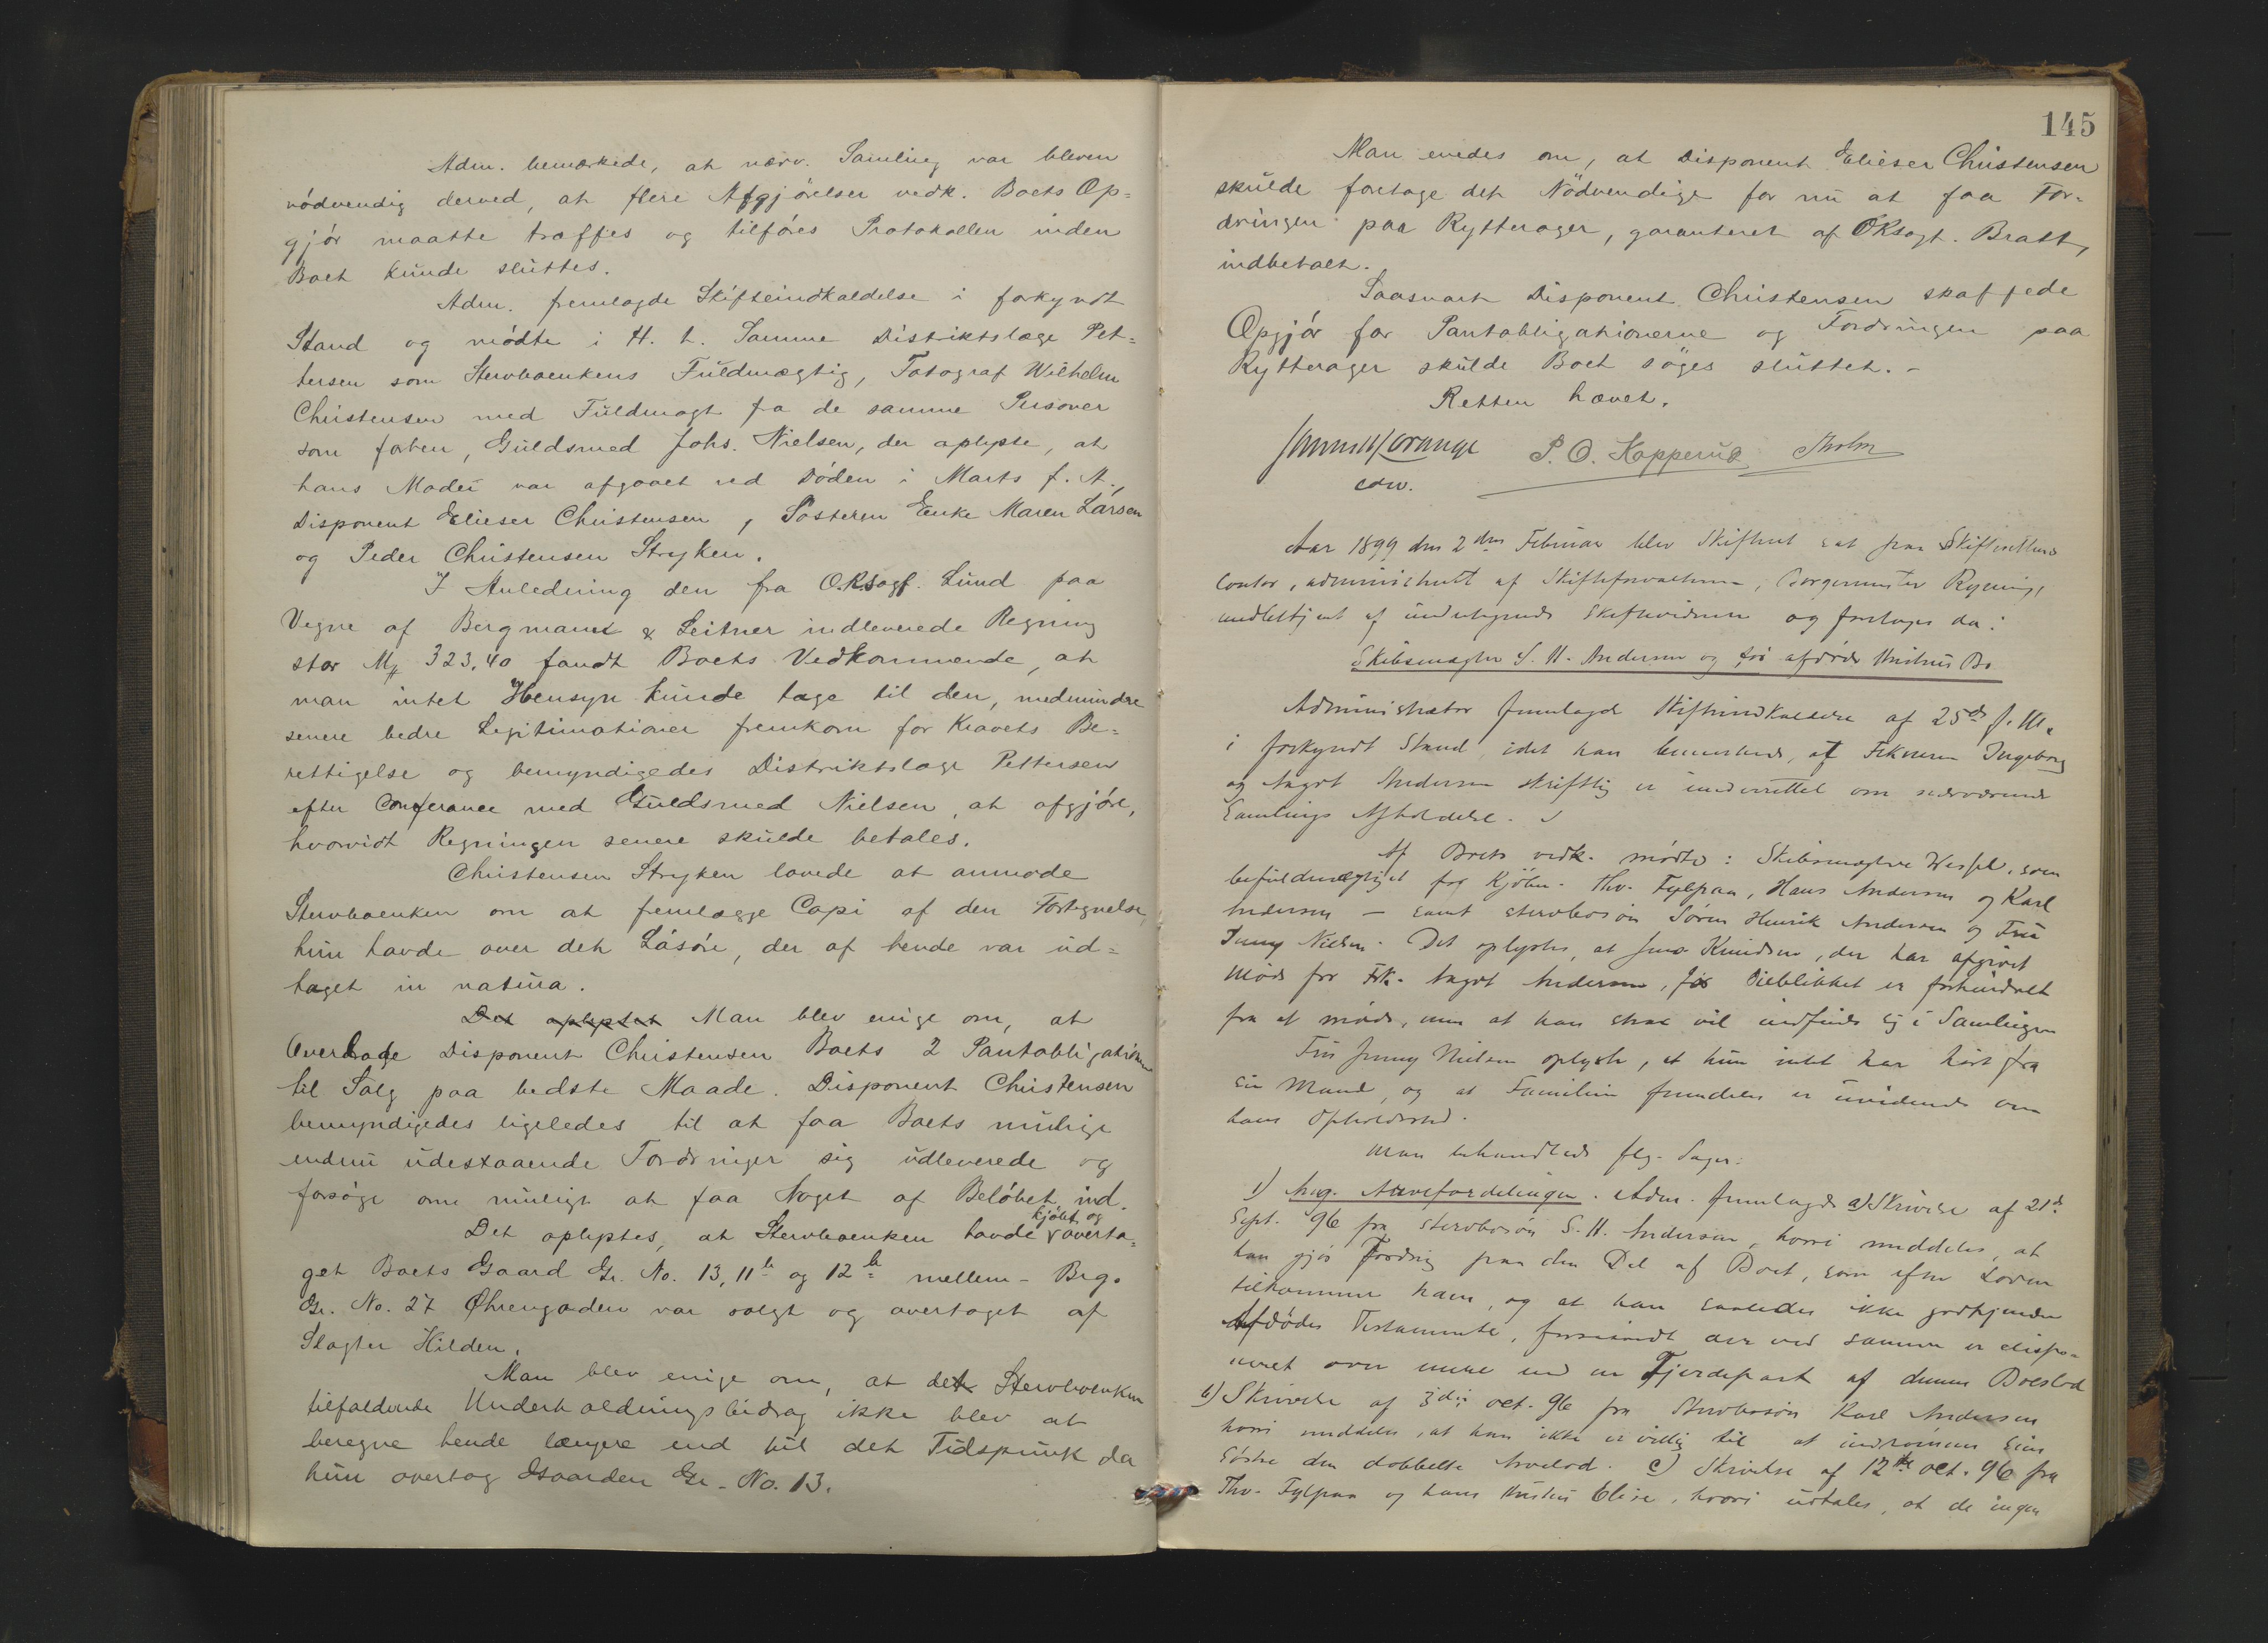 Adm. bemærkede, at nærv. Samling var bleven
nödvendig derved, at flere Afgjörelser vedk. Boets Op=
gjör maatte træffes og tilföres Protokollen inden
Boet kunde sluttes.
Adm. fremlagde Skifteindkaldelse i forkyndt
Stand og mödte i H. t. Samme Distriktslæge Pet=
tersen som Stervboenkens Fuldmægtig, Fotograf Wilhelm
Christensen med Fuldmagt fra de samme Personer
som forhen, Guldsmed Johs. Nielsen, der oplyste, at
hans Moder var afgaaet ved Döden i Marts f. A.,
Disponent Elieser Christensen, Sösteren Enke Maren Larsen
og Peder Christensen Stryken.
I Anledning den fra O.R.sagf. Lund paa
Vegne af Bergmann & Leitner indleverede Regning
stor M 323,40 fandt Boets Vedkommende, at
man intet Hensyn kunde tage til den, medmindre
senere bedre Legitimationer fremkom for Kravets Be=
rettigelse og bemyndigedes Distriktslæge Pettersen
efter Conferance med Guldsmed Nielsen, at afgjöre,
hvorvidt Regningen senere skulde betales.
Christensen Stryken lovede at anmode
Stervboenken om at fremlægge Copi af den Fortegnelse,
hun havde over det Lösöre, der af hende var ud=
taget in natura.
Det oplystes Man blev enige om, at
Overdrage Disponent Christensen Boets 2 Pantobligationer
til Salg paa bedste Maade. Disponent Christensen
bemyndigedes ligeledes til at faa Boets mulige
endnu udestaaende Fordringer sig udleverede og
forsöge om muligt at faa Noget af Belöbet ind.
Det oplystes, at Stervboenken havde kjöbt og overta=
get Boets Gaard Gr. No. 13, 11b og 12b mellem - Brg.
Gr. No. 27 Øhrengaden var solgt og overtaget af
Slagter Hilden.
Man blev enige om, at det Stervboenken
tilfaldende Underholdningsbidrag ikke blev at
beregne hende længere end til det Tidspunk da
hun overtog Gaarden Gr. No. 13.
145
Man enedes om, at Disponent Elieser Christensen
skulde foretage det Nödvendige for nu at faa For=
dringen paa Rytterager, garanteret af ORsagf. Bratt,
indbetalt.
Saasnart Disponent Christensen skaffede
Opgjör for Pantobligationerne og Fordringen paa
Rytterager skulde Boet söges sluttet. -
Retten hævet.
P. O. Kopperud Holm
Aar 1899 den 2den Februar blev Skifteret sat paa Skifterettens
Contor, administreret af Skifteforvalteren, Borgermester Rygning,
medbetjent af undertegnede Skiftevidner og foretoges da:
Skibsmægler S. H. Andersen og för afdöde Hustrus Bo
Administrator fremlagde Skifteindkaldelse af 25de f. M.
i forkyndt Stand, idet han bemærkede, at Frknerne Ingeborg
og Aagot Andersen skriftlig er underrettet om nærværende
Samlings Afholdelse.
Af Boets vedk. mödte: Skibsmægler Wessel, som
befuldmægtiget for Kjöbm. Thv. Fylpaa, Hans Andersen og Karl
Andersen - samt stervbosön Sören Henrik Andersen og Fru
Jenny Nielsen. Det oplystes, at Jens Knudsen, der har afgivet
Möde for Frk. Aagot Andersen, for Öieblikket er forhindret
fra at möde, men at han strax vil indfinde sig i Samlingen
Fru Jenny Nielsen oplyste, at hun intet har hört fra
sin Mand, og at Familien fremdeles er uvidende om
hans Opholdssted.
Man behandlede flg. Sager:
1) Ang. Arvefordelingen. Adm. fremlagde a) Skrivelse af 21de
Sept. 96 fra stervbosön S. H. Andersen, hvori meddeles, at
han gjör Fordring paa den Del af Boet, som efter Loven
tilkommer ham, og at han saaledes ikke godkjender
Afdödes Testamente, forsaavidt der ved samme er dispo=
neret over mere end en Fjerdepart af dennes Boeslod
b) Skrivelse af 3die Oct. 96 fra Stervbosön Karl Andersen
hvori meddeles, at han ikke er villig til at indrömme sine
Söstre den dobbelte Arvelod. c) Skrivelse af 12te Oct. 96 fra
Thv. Fylpaa og hans Hustru Elise, hvori udtales, at de ingen